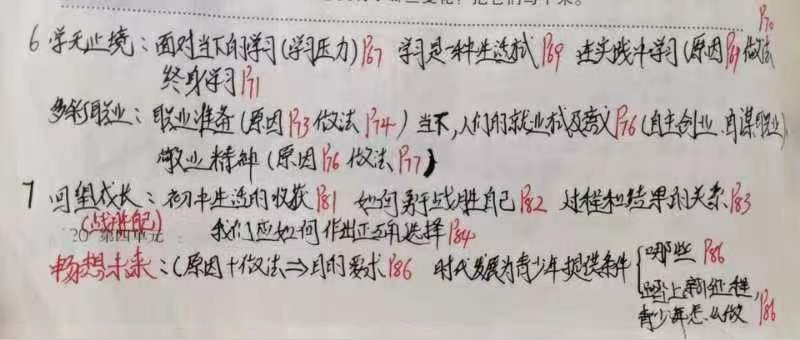 P70
6 学无止境：面对当下的学习(学习压力)P67 学习是一种生活方式P69 在实践中学习(原因P69 做法
终身学习P71
多彩职业：职业准备(原因P73 做法P74) 当下,人们的就业方式及意义P76(自主创业、自谋职业)
敬业精神(原因P76 做法P77)
7 回望成长：初中生活的收获P81 如何勇于战胜自己P82 过程和结果的关系P83
(战胜自己) 我们应如何作出正确选择P84
20 第四单元
畅想未来：(原因+做法⇒目的要求P86 时代发展为青少年提供条件{哪些P86
踏上新征程,
青少年怎么做P86